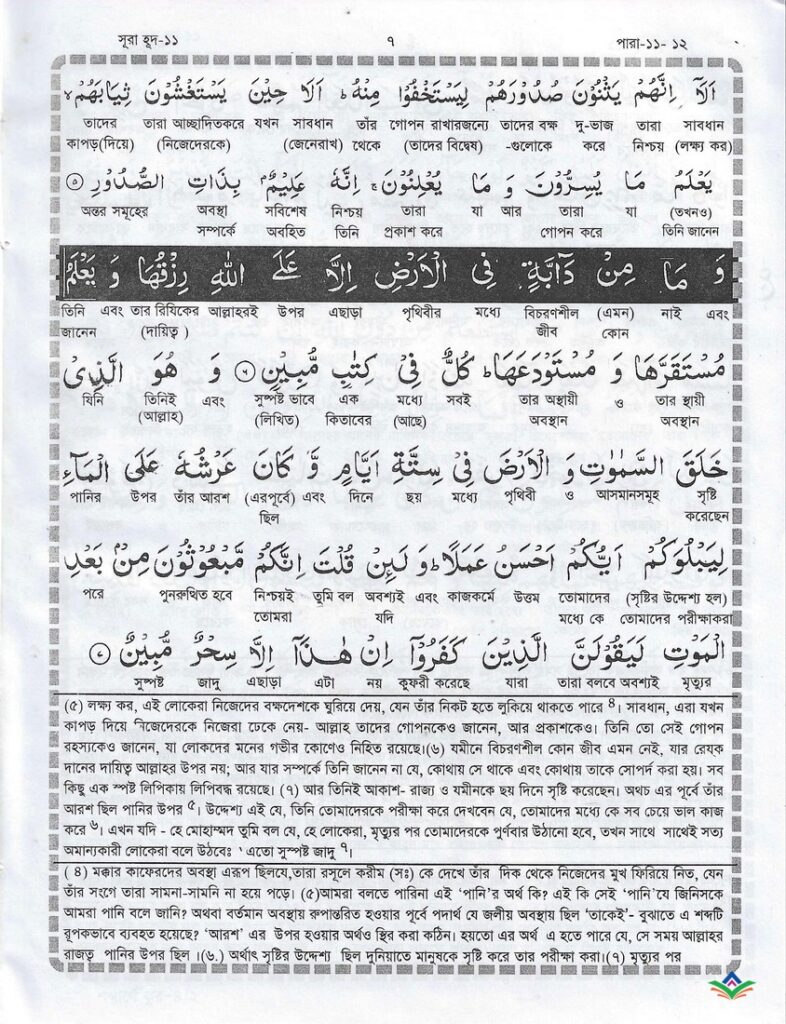 সূরা হূদ-১১ ৭ পারা-১১- ১২
اَلَاۤ اِنَّهُمْ يَثْنُوْنَ صُدُوْرَهُمْ لِيَسْتَخْفُوْا مِنْهُ ؕ اَلَا حِيْنَ يَسْتَغْشُوْنَ ثِيَابَهُمْ ۙ
তাদের তারা আচ্ছাদিতকরে যখন সাবধান তাঁর গোপন রাখারজন্যে তাদের বক্ষ দু-ভাজ তারা সাবধান
কাপড়(দিয়ে) (নিজেদেরকে) (জেনেরাখ) থেকে (তাদের বিদ্বেষ) -গুলোকে করে নিশ্চয় (লক্ষ্য কর)
يَعْلَمُ مَا يُسِرُّوْنَ وَ مَا يُعْلِنُوْنَ ۚ اِنَّهٗ عَلِيْمٌۢ بِذَاتِ الصُّدُوْرِ ۵
অন্তর সমূহের অবস্থা সবিশেষ নিশ্চয় তারা যা আর তারা যা (তখনও)
সম্পর্কে অবহিত তিনি প্রকাশ করে গোপন করে তিনি জানেন
وَ مَا مِنْ دَآبَّةٍ فِي الْاَرْضِ اِلَّا عَلَى اللّٰهِ رِزْقُهَا وَ يَعْلَمُ
তিনি এবং তার রিযিকের আল্লাহরই উপর এছাড়া পৃথিবীর মধ্যে বিচরণশীল (এমন) নাই এবং
জানেন (দায়িত্ব ) জীব কোন
مُسْتَقَرَّهَا وَ مُسْتَوْدَعَهَا ؕ كُلٌّ فِيْ كِتٰبٍ مُّبِيْنٍ ۶ وَ هُوَ الَّذِيْ
যিনি তিনিই এবং সুস্পষ্ট ভাবে এক মধ্যে সবই তার অস্থায়ী ও তার স্থায়ী
(আল্লাহ) (লিখিত) কিতাবের (আছে) অবস্থান অবস্থান
خَلَقَ السَّمٰوٰتِ وَ الْاَرْضَ فِيْ سِتَّةِ اَيَّامٍ وَّ كَانَ عَرْشُهٗ عَلَى الْمَآءِ
পানির উপর তাঁর আরশ (এরপূর্বে) এবং দিনে ছয় মধ্যে পৃথিবী ও আসমানসমূহ সৃষ্টি
ছিল করেছেন
لِيَبْلُوَكُمْ اَيُّكُمْ اَحْسَنُ عَمَلًا ؕ وَ لَئِنْ قُلْتَ اِنَّكُمْ مَّبْعُوْثُوْنَ مِنْۢ بَعْدِ
পরে পুনরুত্থিত হবে নিশ্চয়ই তুমি বল অবশ্যই এবং কাজকর্মে উত্তম তোমাদের (সৃষ্টির উদ্দেশ্য হল)
তোমরা যদি মধ্যে কে তোমাদের পরীক্ষাকরা
الْمَوْتِ لَيَقُوْلَنَّ الَّذِيْنَ كَفَرُوْۤا اِنْ هٰذَاۤ اِلَّا سِحْرٌ مُّبِيْنٌ ۷
সুস্পষ্ট জাদু এছাড়া এটা নয় কুফরী করেছে যারা তারা বলবে অবশ্যই মৃত্যুর
(৫) লক্ষ্য কর, এই লোকেরা নিজেদের বক্ষদেশকে ঘুরিয়ে দেয়, যেন তাঁর নিকট হতে লুকিয়ে থাকতে পারে ৪। সাবধান, এরা যখন
কাপড় দিয়ে নিজেদেরকে নিজেরা ঢেকে নেয়- আল্লাহ তাদের গোপনকেও জানেন, আর প্রকাশকেও। তিনি তো সেই গোপন
রহস্যকেও জানেন, যা লোকদের মনের গভীর কোণেও নিহিত রয়েছে।(৬) যমীনে বিচরণশীল কোন জীব এমন নেই, যার রেযক
দানের দায়িত্ব আল্লাহর উপর নয়; আর যার সম্পর্কে তিনি জানেন না যে, কোথায় সে থাকে এবং কোথায় তাকে সোপর্দ করা হয়। সব
কিছু এক স্পষ্ট লিপিকায় লিপিবদ্ধ রয়েছে। (৭) আর তিনিই আকাশ- রাজ্য ও যমীনকে ছয় দিনে সৃষ্টি করেছেন। অথচ এর পূর্বে তাঁর
আরশ ছিল পানির উপর ৫। উদ্দেশ্য এই যে, তিনি তোমাদেরকে পরীক্ষা করে দেখবেন যে, তোমাদের মধ্যে কে সব চেয়ে ভাল কাজ
করে ৬। এখন যদি - হে মোহাম্মদ তুমি বল যে, হে লোকেরা, মৃত্যুর পর তোমাদেরকে পুর্ণবার উঠানো হবে, তখন সাথে সাথেই সত্য
অমান্যকারী লোকেরা বলে উঠবেঃ 'এতো সুস্পষ্ট জাদু ৭।
( ৪) মক্কার কাফেরদের অবস্থা এরূপ ছিলযে,তারা রসূলে করীম (সঃ) কে দেখে তাঁর দিক থেকে নিজেদের মুখ ফিরিয়ে নিত, যেন
তাঁর সংগে তারা সামনা-সামনি না হয়ে পড়ে। (৫)আমরা বলতে পারিনা এই 'পানি'র অর্থ কি? এই কি সেই 'পানি'যে জিনিসকে
আমরা পানি বলে জানি? অথবা বর্তমান অবস্থায় রুপান্তরিত হওয়ার পূর্বে পদার্থ যে জলীয় অবস্থায় ছিল 'তাকেই'- বুঝাতে এ শব্দটি
রূপকভাবে ব্যবহৃত হয়েছে? 'আরশ' এর উপর হওয়ার অর্থও স্থির করা কঠিন। হয়তো এর অর্থ এ হতে পারে যে, সে সময় আল্লাহর
রাজত্ব পানির উপর ছিল ।(৬.) অর্থাৎ সৃষ্টির উদ্দেশ্য ছিল দুনিয়াতে মানুষকে সৃষ্টি করে তার পরীক্ষা করা।(৭) মৃত্যুর পর